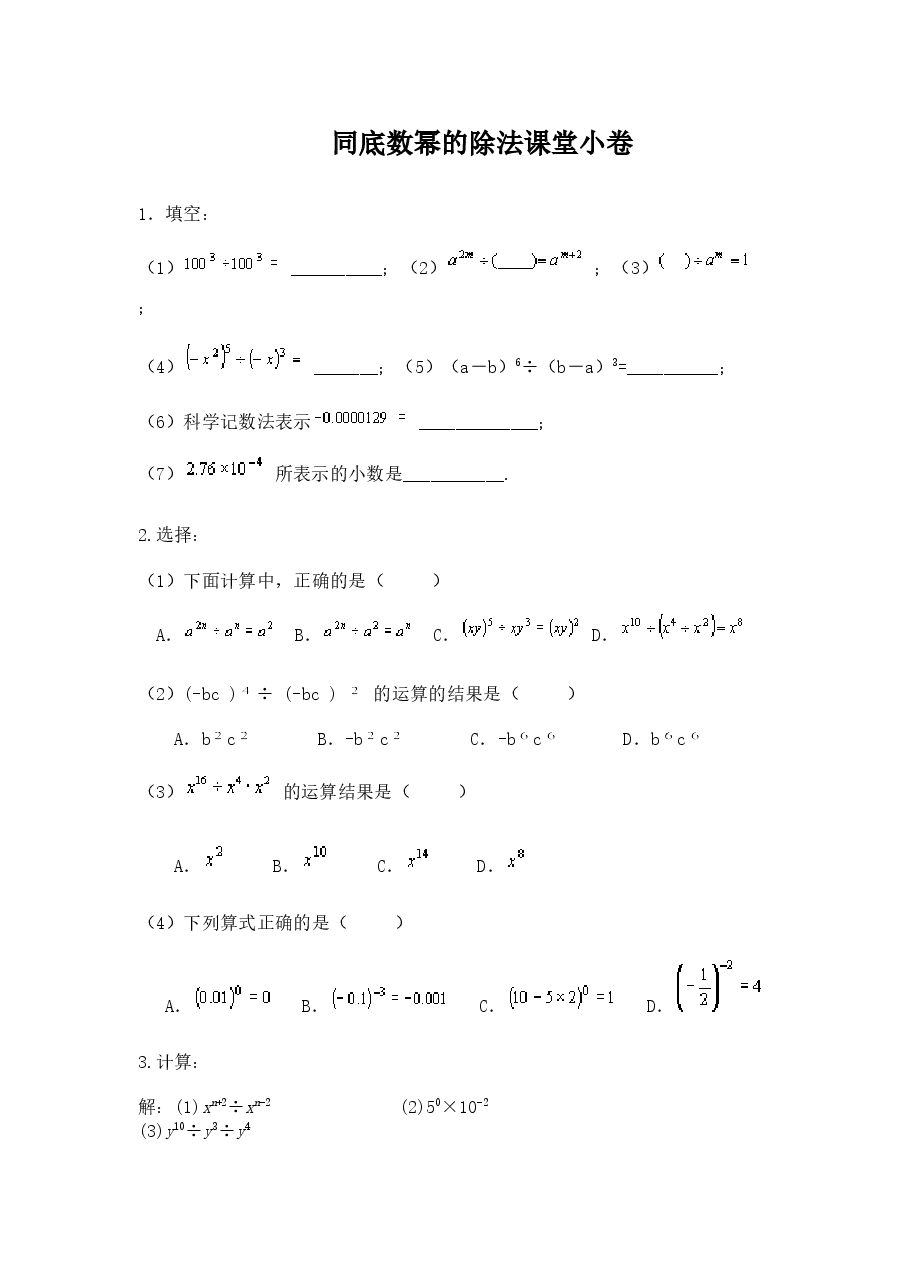 同底数幂的除法课堂小卷
1. 填空:
(1) 100³÷100³= __________; (2) a²ᵐ÷(____)=aᵐ⁺² ; (3) (  )÷aᵐ=1
;
(4) (-x²)⁵÷(-x)³= _______; (5) (a-b)⁶÷(b-a)³=__________;
(6) 科学记数法表示-0.0000129 = _____________;
(7) 2.76×10⁻⁴ 所表示的小数是___________.
2.选择:
(1) 下面计算中, 正确的是(  )
A. a²ⁿ÷aⁿ=a² B. a²ⁿ÷a²=aⁿ C. (xy)⁵÷xy³=(xy)² D. x¹⁰÷(x⁴÷x²)=x⁸
(2) (-bc )⁴÷ (-bc ) ² 的运算的结果是(  )
A. b²c² B. -b²c² C. -b⁶c⁶ D. b⁶c⁶
(3) x¹⁶÷x⁴·x² 的运算结果是(  )
A. x² B. x¹⁰ C. x¹⁴ D. x⁸
(4) 下列算式正确的是(  )
A. (0.01)⁰=0 B. (-0.1)⁻³=-0.001 C. (10-5×2)⁰=1 D. (-1/2)⁻²=4
3.计算:
解: (1) xⁿ⁺²÷xⁿ⁻² (2)5⁰×10⁻²
(3)y¹⁰÷y³÷y⁴